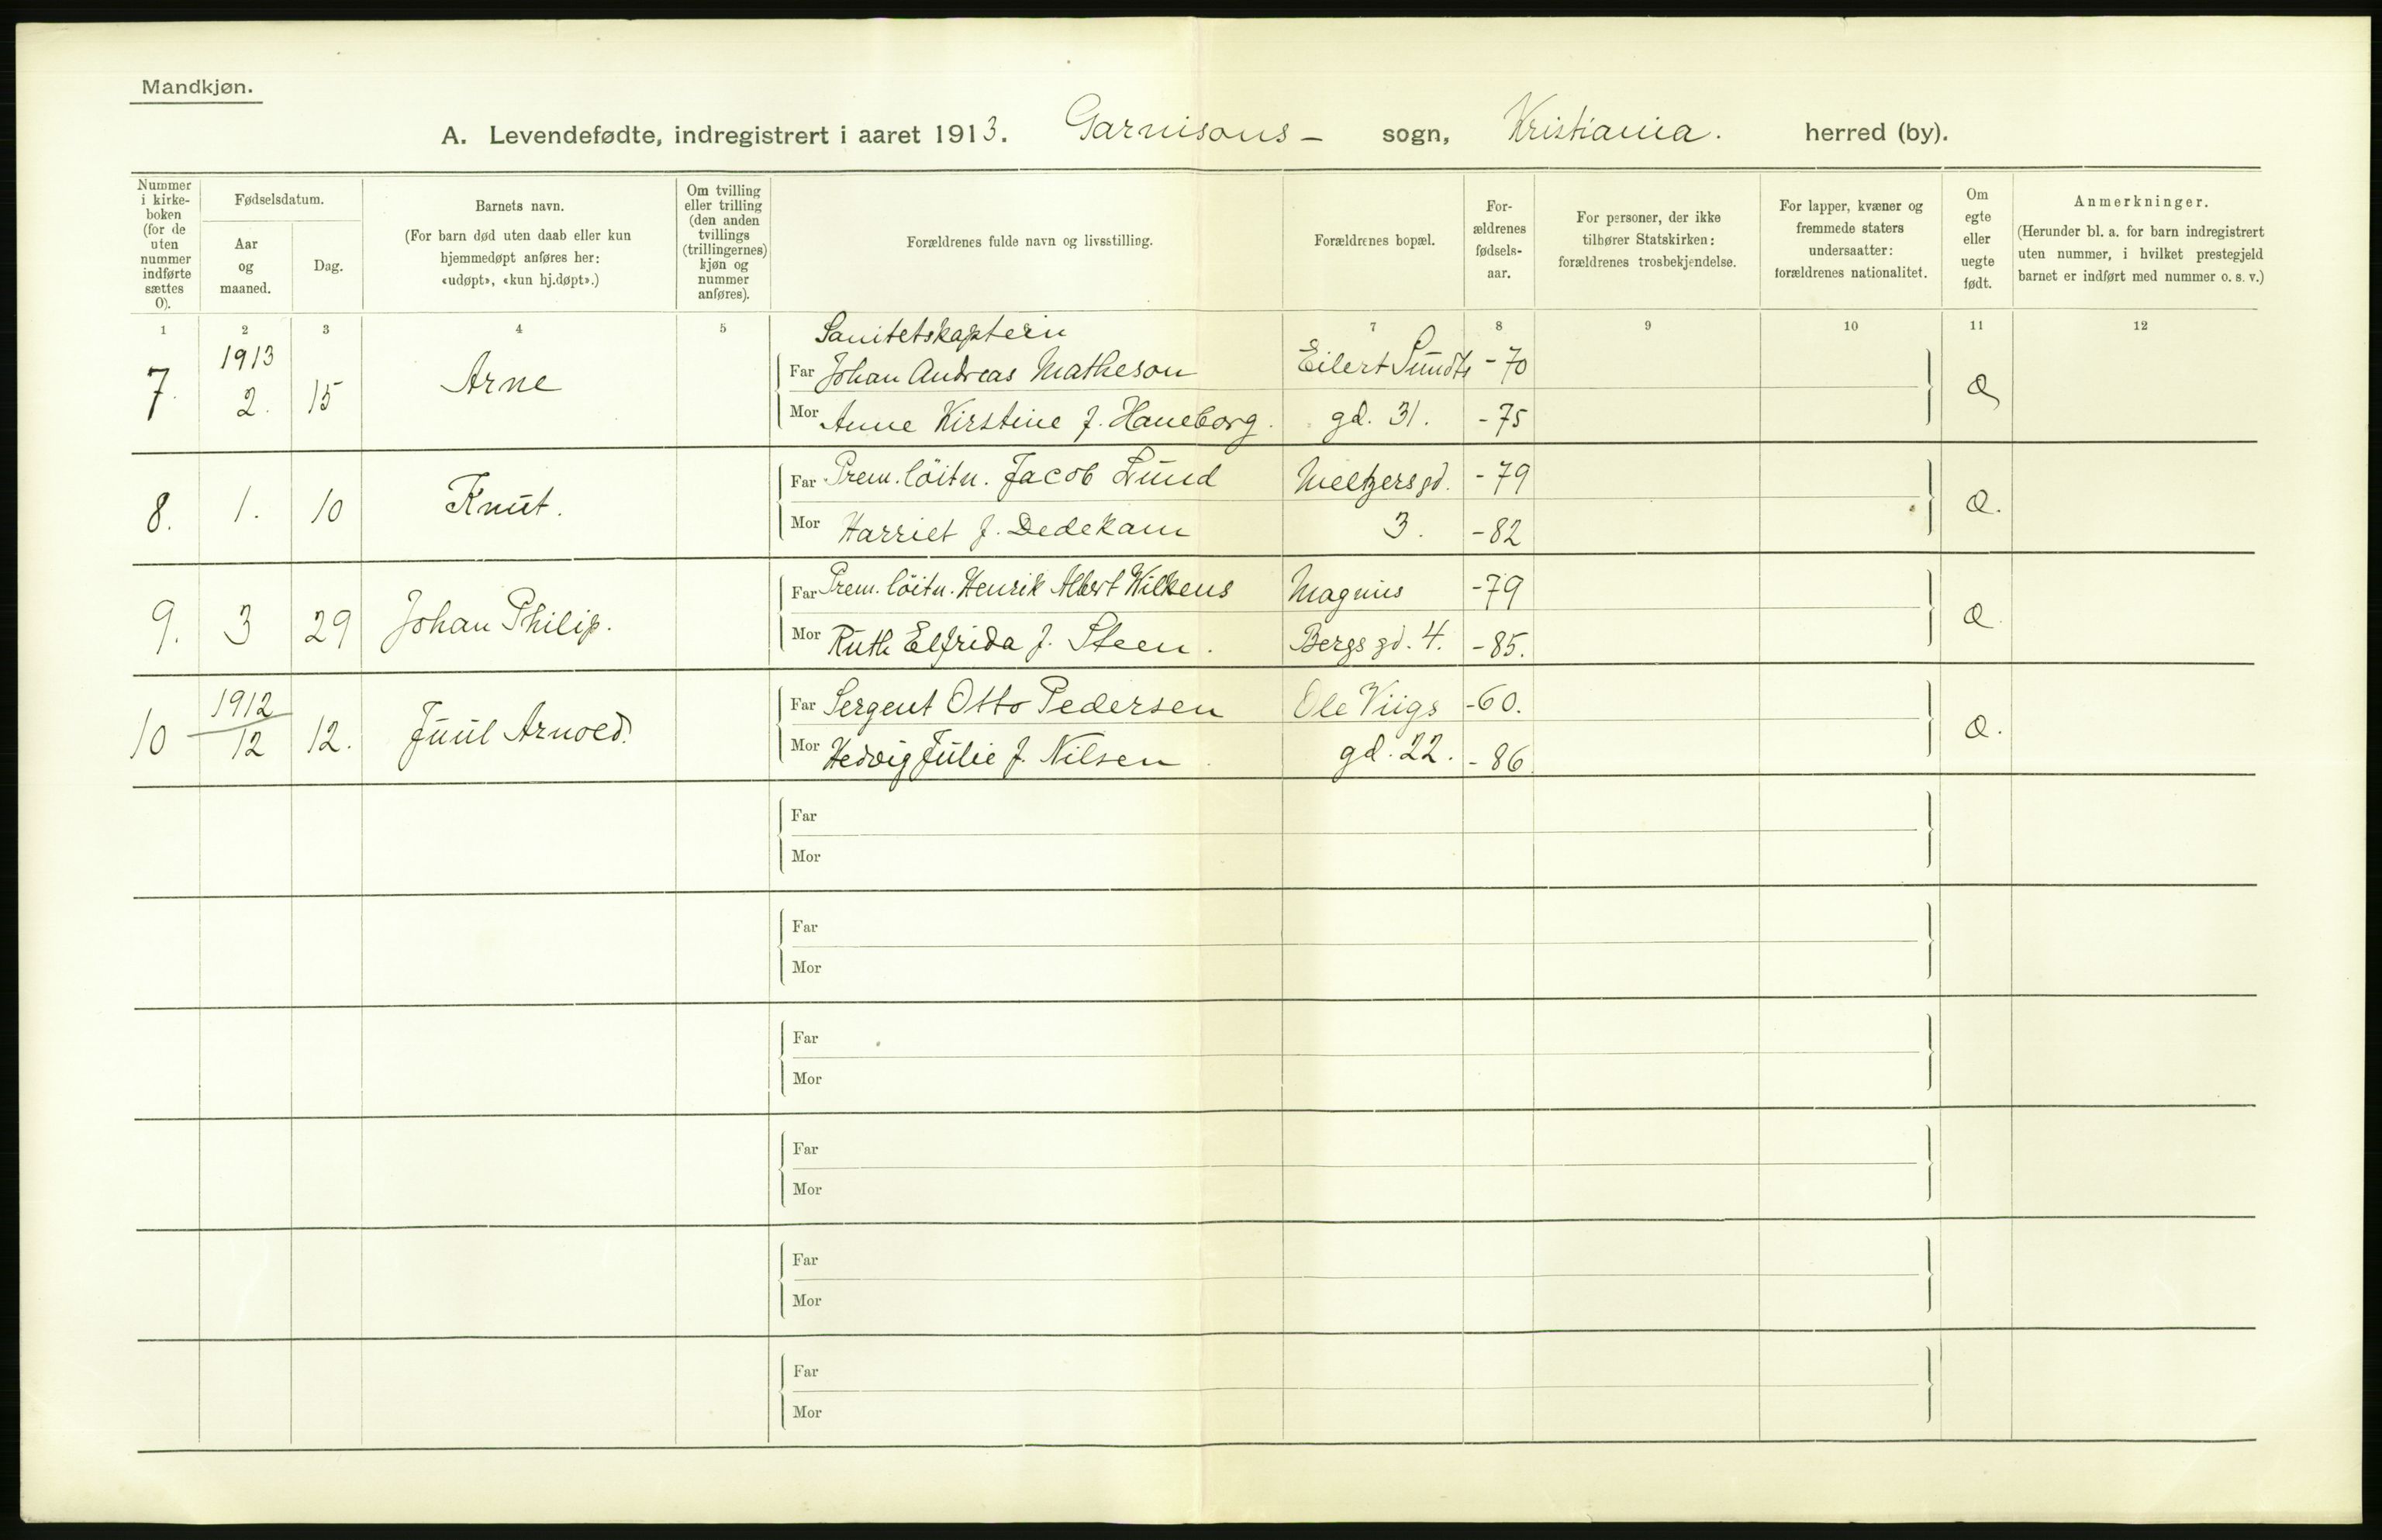 Mandkjøn.
A. Levendefødte, indregistrert i aaret 1913. Garnisons- sogn, Kristiania. herred (by).
Nummer
i kirke-
boken
(for de
uten
nummer
indførte
sættes
0).
Fødselsdatum.
Aar
og
maaned.
Dag.
Barnets navn.
(For barn død uten daab eller kun
hjemmedøpt anføres her:
«udøpt», «kun hj.døpt».)
Om tvilling
eller trilling
(den anden
tvillings
(trillingernes)
kjøn og
nummer
anføres).
Forældrenes fulde navn og livsstilling.
Forældrenes bopæl.
For-
ældrenes
fødsels-
aar.
For personer, der ikke
tilhører Statskirken:
forældrenes trosbekjendelse.
For lapper, kvæner og
fremmede staters
undersaatter:
forældrenes nationalitet.
Om
egte
eller
uegte
født.
Anmerkninger.
(Herunder bl. a. for barn indregistrert
uten nummer, i hvilket prestegjeld
barnet er indført med nummer o. s. v.)
1 2 3 4 5 7 8 9 10 11 12
Sanitetskaptein
1913
7. 2. 15 Arne Far Johan Andreas Matheson Eilert Sundts -70 Æ
Mor Anne Kirstine f. Haneborg. gd. 31. -75
8. 1. 10 Knut. Far Prem. löitn. Jacob Lund Meltzers gd. -79 Æ.
Mor Harriet f. Dedekam 3. -82
9. 3 29 Johan Philip. Far Prem. löitn. Henrik Albert Wilkens Magnus -79 Æ
Mor Ruth Elfrida f. Steen. Bergs gd. 4. -85.
1912
10 12 12. Juul Arnold. Far Sergent Otto Pedersen Ole Viigs -60. Æ.
Mor Hedvig Julie f. Nilsen gd. 22. -86
Far
Mor
Far
Mor
Far
Mor
Far
Mor
Far
Mor
Far
Mor